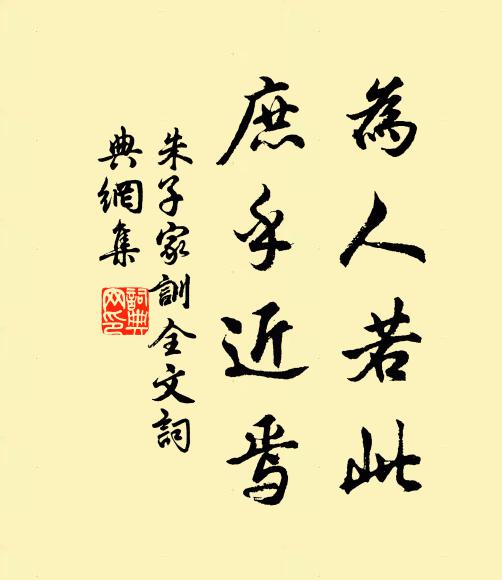 為人若此
庶乎近焉
朱子家訓全文詞
典網集
詞典
网印